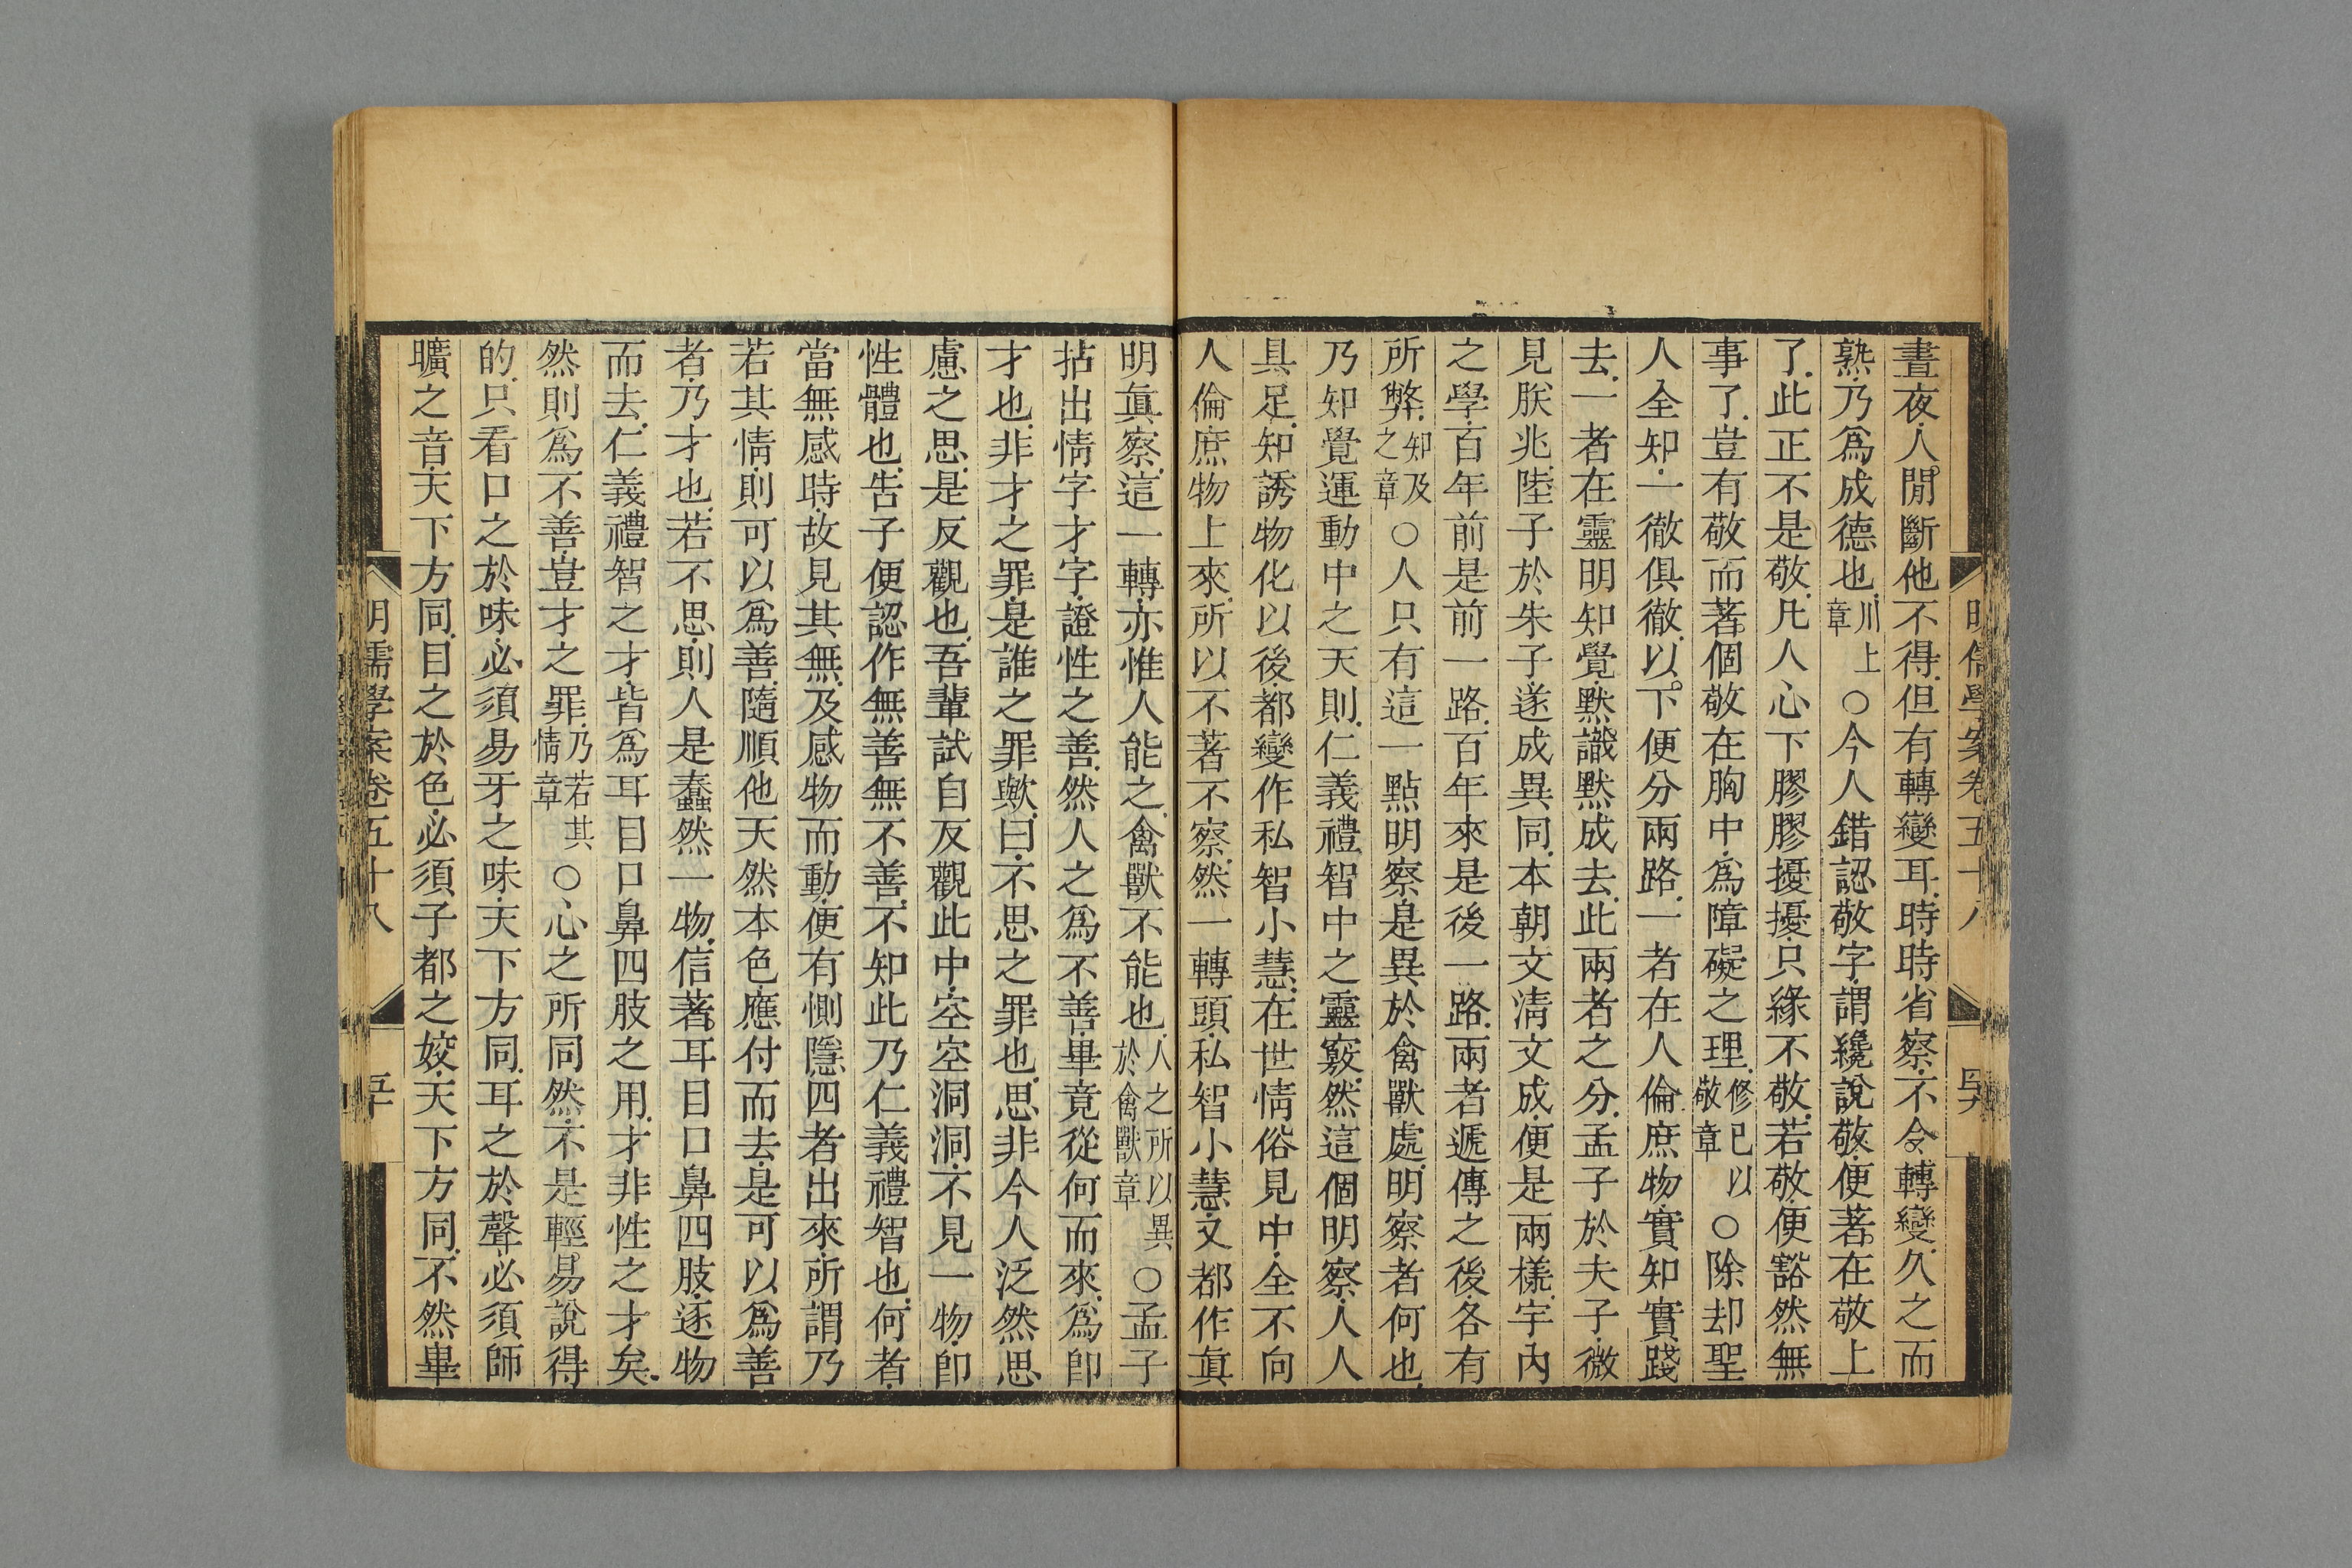 晝夜.人閒斷他不得.但有轉變耳.時時省察.不令轉變.久之而
熟.乃爲成德也.川上章○今人錯認敬字.謂纔說敬.便著在敬上
了.此正不是敬.凡人心下膠膠擾擾.只緣不敬.若敬.便豁然無
事了.豈有敬而著個敬在胸中.爲障礙之理.修己以敬章○除却聖
人全知.一徹俱徹.以下便分兩路.一者在人倫庶物.實知實踐
去.一者在靈明知覺.默識默成去.此兩者之分.孟子於夫子.微
見朕兆.陸子於朱子.遂成異同.本朝文淸文成.便是兩樣.宇內
之學.百年前是前一路.百年來是後一路.兩者遞傳之後.各有
所弊.知及之章○人只有這一點明察.是異於禽獸處.明察者何也.
乃知覺運動中之天則.仁義禮智中之靈竅.然這個明察.人人
具足.知誘物化以後.都變作私智小慧.在世情俗見中.全不向
人倫庶物上來.所以不著不察.然一轉頭.私智小慧.又都作眞
明眞察.這一轉.亦惟人能之.禽獸不能也.人之所以異於禽獸章○孟子
拈出情字才字.證性之善.然人之爲不善.畢竟從何而來.爲卽
才也.非才之罪.是誰之罪歟.曰.不思之罪也.思非今人泛然思
慮之思.是反觀也.吾輩試自反觀.此中空空洞洞.不見一物.卽
性體也.告子便認作無善無不善.不知此乃仁義禮智也.何者.
當無感時.故見其無.及感物而動.便有惻隱四者出來.所謂乃
若其情.則可以爲善.隨順他天然本色.應付而去.是可以爲善
者.乃才也.若不思.則人是蠢然一物.信著耳目口鼻四肢.逐物
而去.仁義禮智之才.皆爲耳目口鼻四肢之用.才非性之才矣.
然則爲不善.豈才之罪.乃若其情章○心之所同然.不是輕易說得
的.只看口之於味.必須易牙之味.天下方同.耳之於聲.必須師
曠之音.天下方同.目之於色.必須子都之姣.天下方同.不然.畢
明儒學案卷五十八